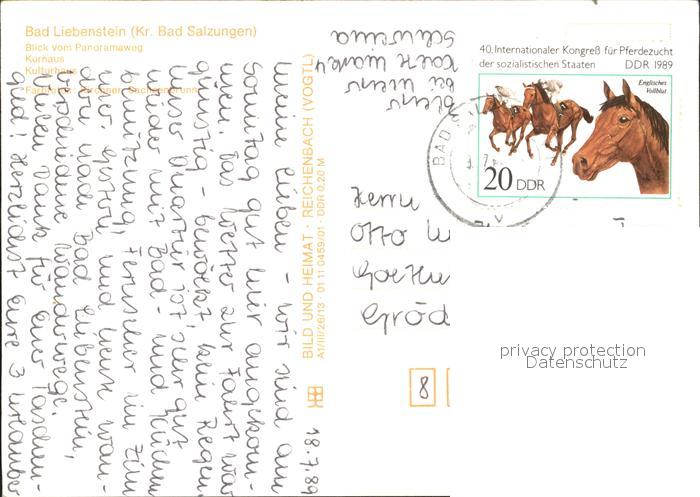 Bad Liebenstein (Kr. Bad Salzungen)
Blick vom Panoramaweg
Kurhaus
Kulturhaus
BILD UND HEIMAT · REICHENBACH (VOGTL)
A1/III/26/13 01 11 0459/01 · DDR 0,20 M
18.7.89
Meine Lieben – wir sind am
Sonntag gut hier angekom-
men. Das Wetter zur Fahrt war
günstig – bewölkt, kein Regen.
Unser Quartier ist sehr gut
wieder mit Bad- und Küchen-
benutzung, Fernseher im Zim-
mer. Gestern und heute wan-
derten nach Bad Liebenstein,
Wanderwege.
Vielen Dank für Euer Taschen-
geld! Herzlichst Eure 3 Urlauber
bei
Schweina
40. Internationaler Kongreß für Pferdezucht
der sozialistischen Staaten DDR 1989
Englisches
Vollblut
20 DDR
BAD
Herrn
Otto
Goethe
Gröd
8
privacy protection
Datenschutz